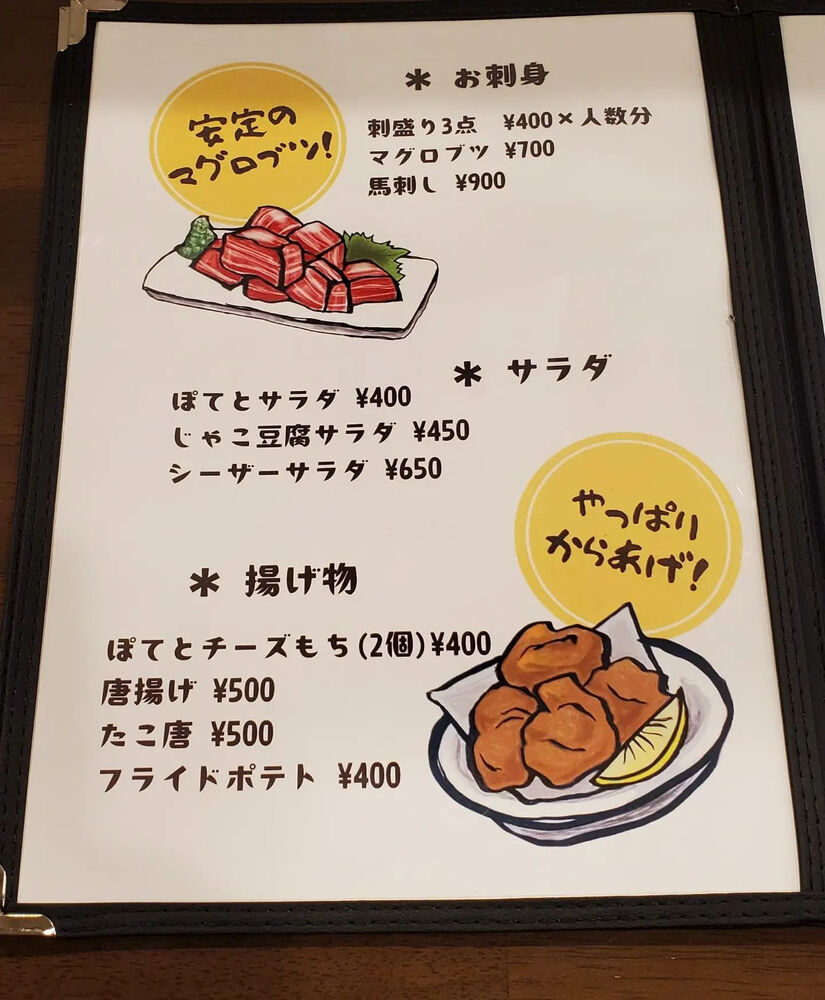 安定の
マグロブツ!
* お刺身
刺盛り3点 ¥400×人数分
マグロブツ ¥700
馬刺し ¥900
* サラダ
ぽてとサラダ ¥400
じゃこ豆腐サラダ ¥450
シーザーサラダ ¥650
やっぱり
からあげ!
* 揚げ物
ぽてとチーズもち(2個)¥400
唐揚げ ¥500
たこ唐 ¥500
フライドポテト ¥400